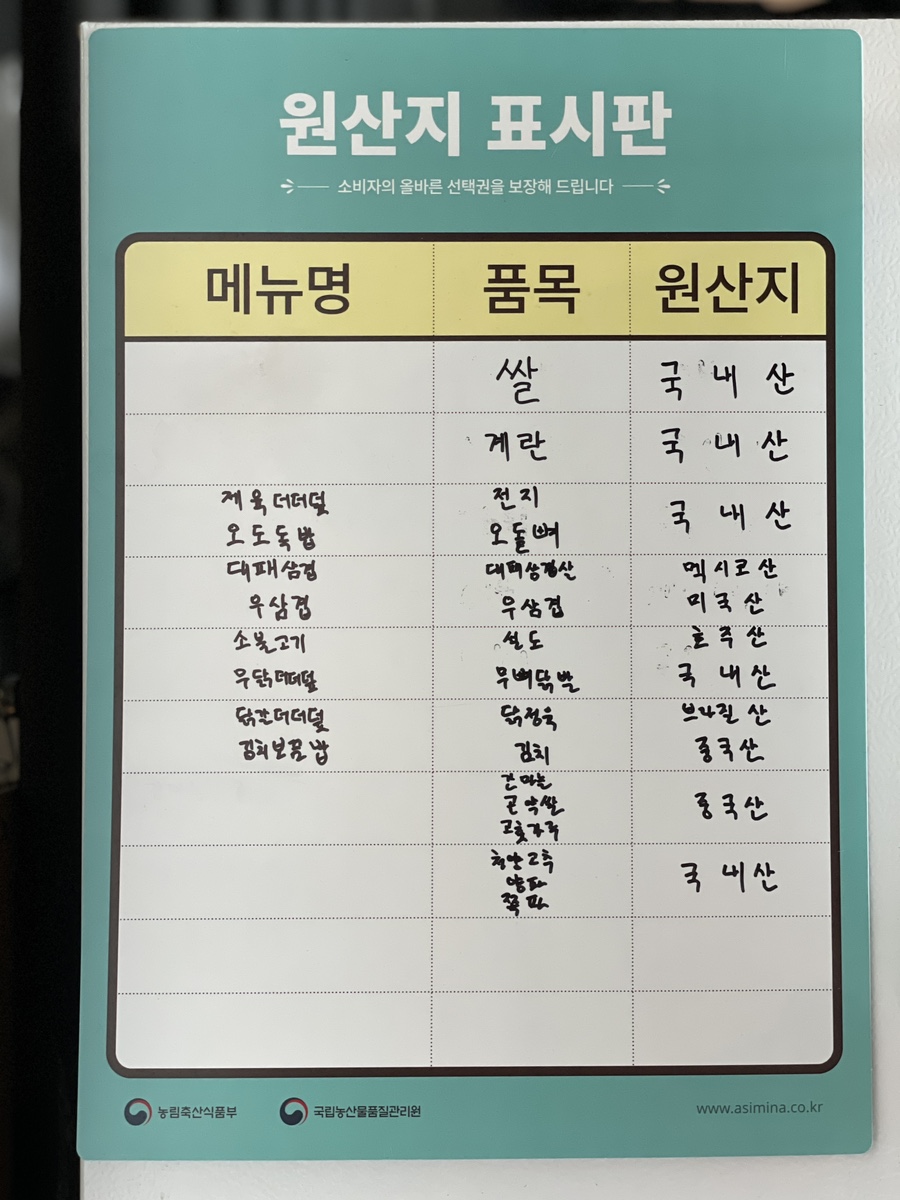 원산지 표시판
소비자의 올바른 선택권을 보장해 드립니다
메뉴명 품목 원산지
쌀 국내산
계란 국내산
제육더더덮 전지 국내산
오도독밥 오돌뼈
대패삼겹 대패삼겹살 멕시코산
우삼겹 우삼겹 미국산
소불고기 설도 호주산
무닭더더덮 무뼈닭발 국내산
닭갈더더덮 닭정육 브라질산
김치보끔밥 김치 중국산
건마늘
곤약쌀 중국산
고춧가루
청양고추
양파 국내산
쪽파
농림축산식품부 국립농산물품질관리원 www.asimina.co.kr